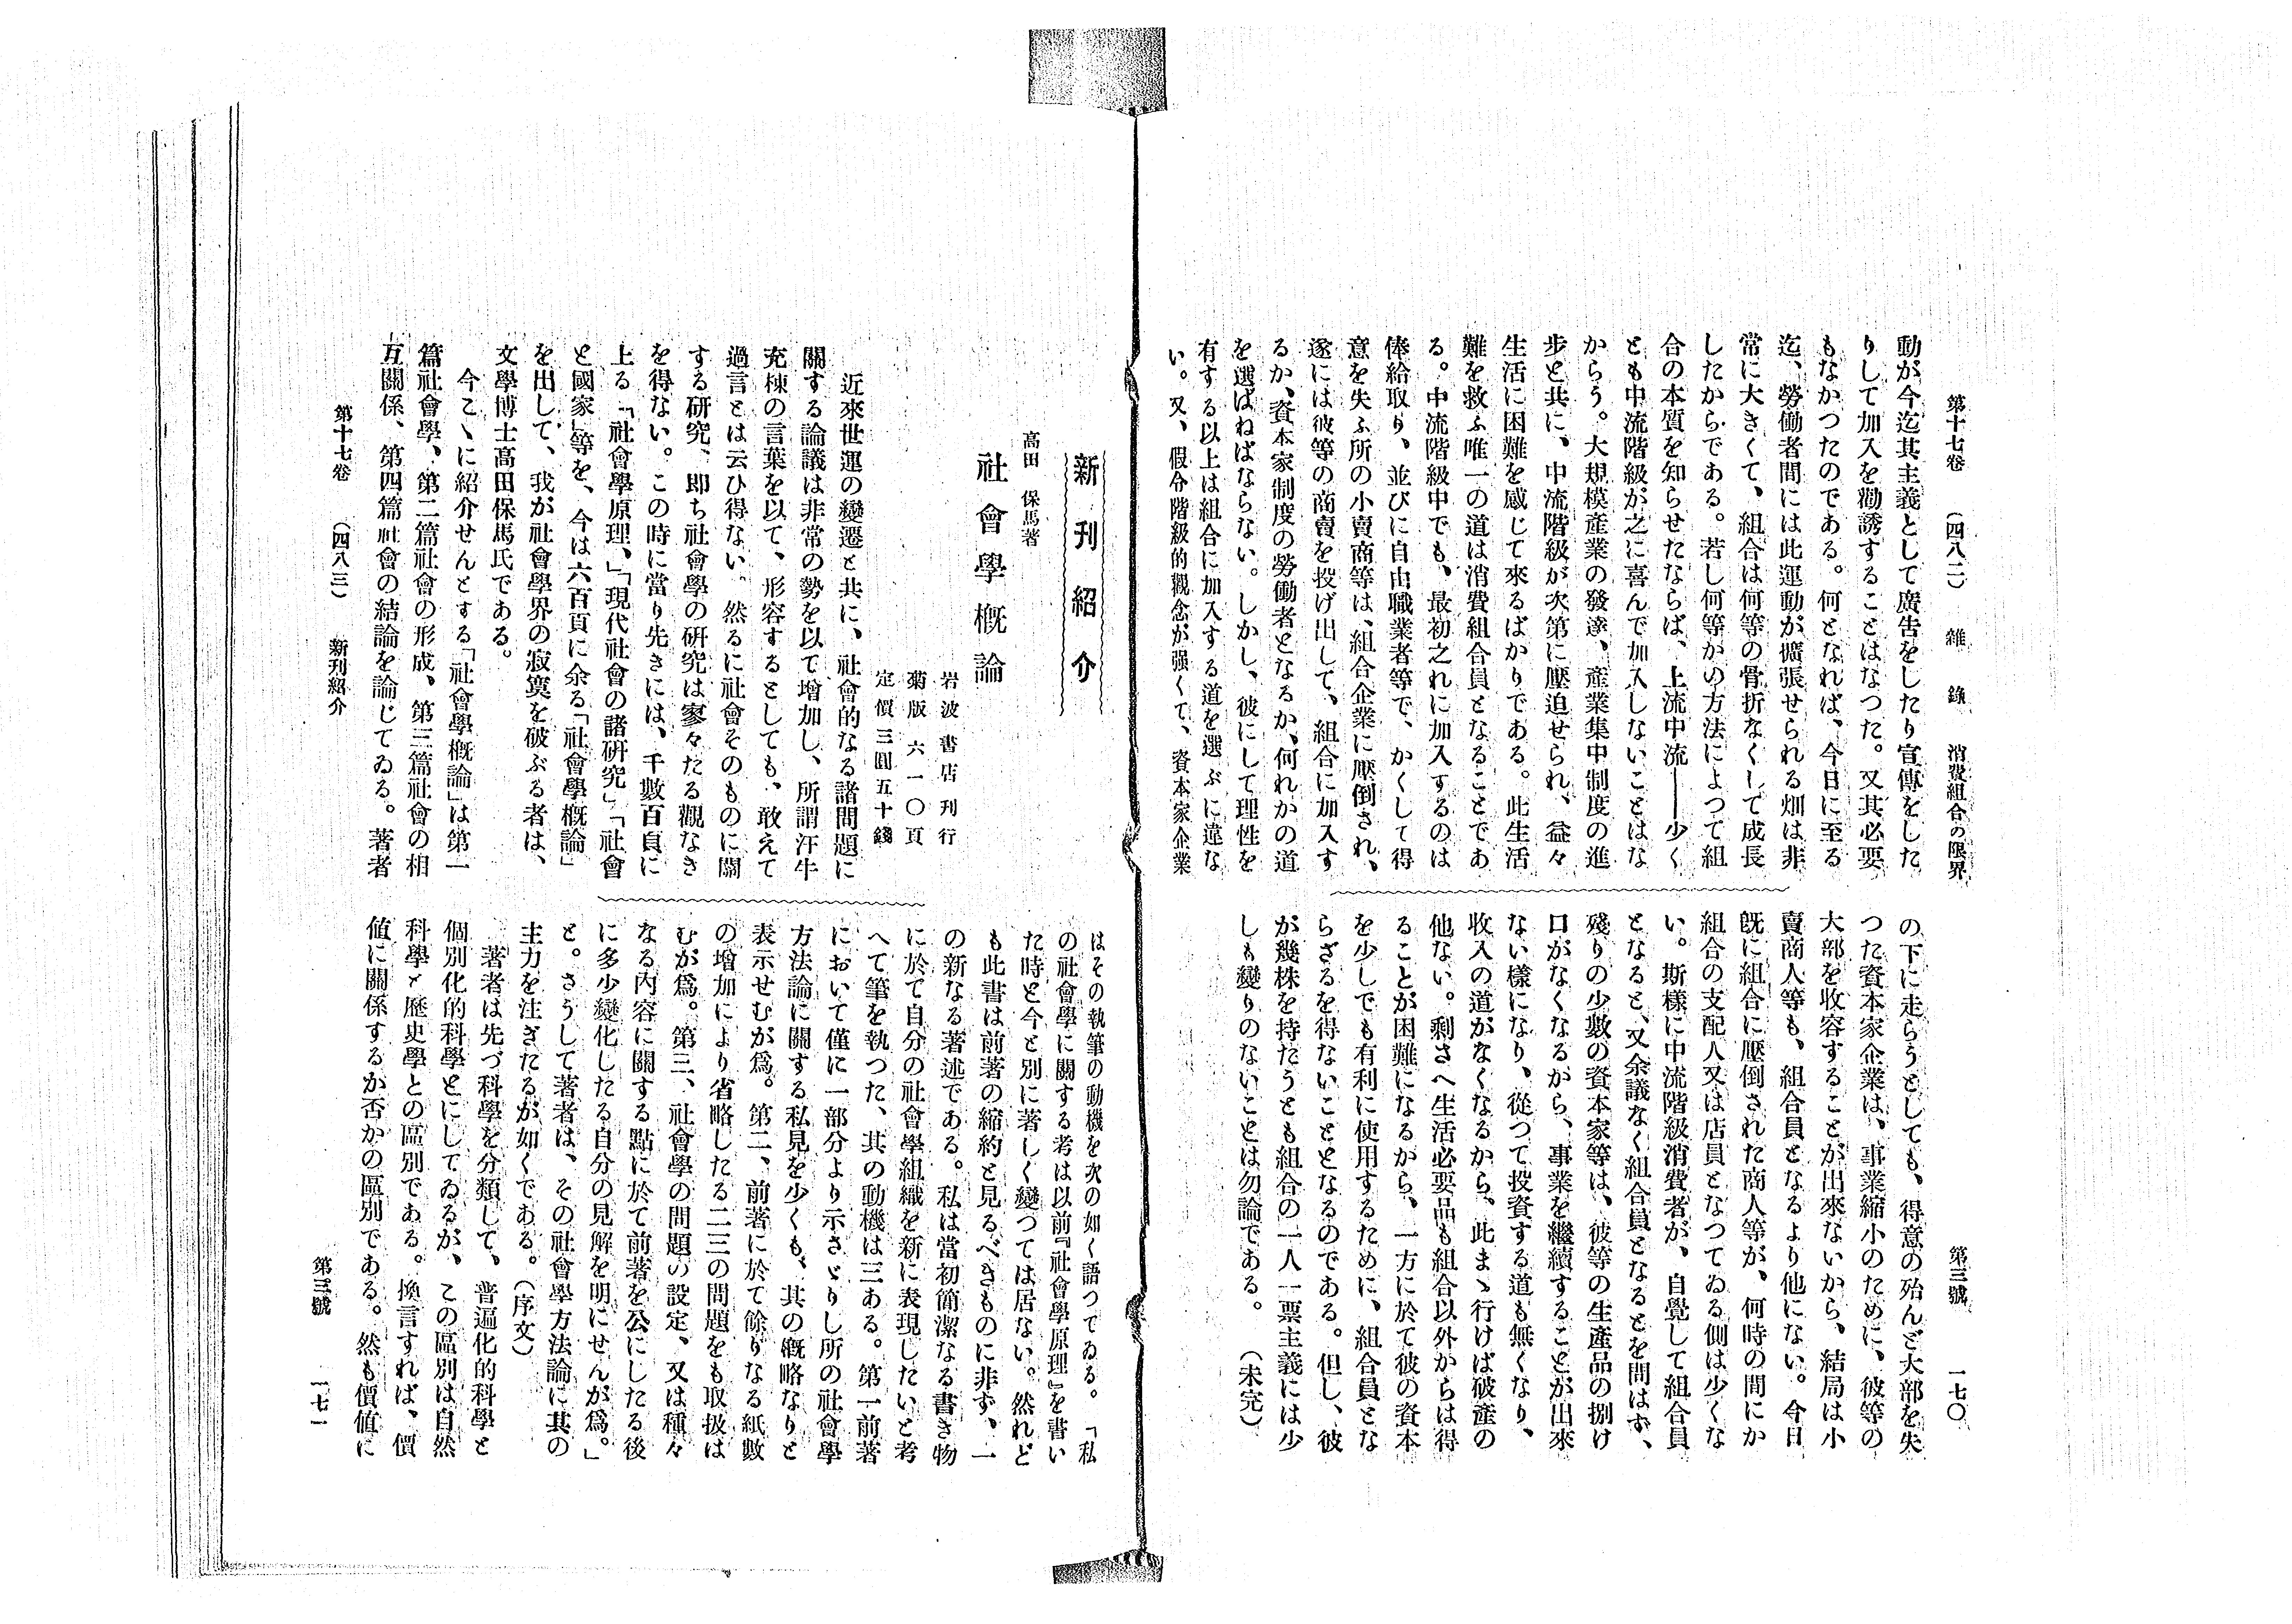 第十七卷 (四八二) 雜錄 消費組合の限界 第三號 一七〇
動が今迄其主義として廣吿をしたり宣傳をした
りして加入を勸誘することはなつた。又其必要
もなかつたのである。何となれば、今日に至る
迄、勞働者間には此運動が擴張せられる畑は非
常に大きくて、組合は何等の骨折なくして成長
したからである。若し何等かの方法によつて組
合の本質を知らせたならば、上流中流――少く
とも中流階級が之に喜んで加入しないことはな
からう。大規模產業の發達、產業集中制度の進
步と共に、中流階級が次第に壓迫せられ、益々
生活に困難を感じて來るばかりである。此生活
難を救ふ唯一の道は消費組合員となることであ
る。中流階級中でも、最初之れに加入するのは
俸給取り、並びに自由職業者等で、かくして得
意を失ふ所の小賣商等は、組合企業に壓倒され、
遂には彼等の商賣を投げ出して、組合に加入す
るか、資本家制度の勞働者となるか、何れかの道
を選ばねばならない。しかし、彼にして理性を
有する以上は組合に加入する道を選ぶに違な
い。又、假令階級的觀念が强くて、資本家企業
の下に走らうとしても、得意の殆んど大部を失
つた資本家企業は、事業縮小のために、彼等の
大部を收容することが出來ないから、結局は小
賣商人等も、組合員となるより他にない。今日
旣に組合に壓倒された商人等が、何時の間にか
組合の支配人又は店員となつてゐる側は少くな
い。斯樣に中流階級消費者が、自覺して組合員
となると、又余議なく組合員となるとを問はず、
殘りの少數の資本家等は、彼等の生產品の捌け
口がなくなるから、事業を繼續することが出來
ない樣になり、從つて投資する道も無くなり、
收入の道がなくなるから、此まゝ行けば破產の
他ない。剩さへ生活必要品も組合以外からは得
ることが困難になるから、一方に於て彼の資本
を少しでも有利に使用するために、組合員とな
らざるを得ないことゝなるのである。但し、彼
が幾株を持たうとも組合の一人一票主義には少
しも變りのないことは勿論である。 (未完)
新刊紹介
高田保馬著
社會學槪論
岩波書店刊行
菊版 六一〇頁
定價三圓五十錢
近來世運の變遷と共に、社會的なる諸問題に
關する論議は非常の勢を以て增加し、所謂汗牛
充棟の言葉を以て、形容するとしても、敢えて
過言とは云ひ得ない。然るに社會そのものに關
する硏究、卽ち社會學の硏究は寥々たる觀なき
を得ない。この時に當り先きには、千數百頁に
上る「社會學原理」、「現代社會の諸硏究」「社會
と國家」等を、今は六百頁に余る「社會學槪論」
を出して、我が社會學界の寂寞を破ぶる者は、
文學博士高田保馬氏である。
今こゝに紹介せんとする「社會學槪論」は第一
篇社會學、第二篇社會の形成、第三篇社會の相
互關係、第四篇社會の結論を論じてゐる。著者
はその執筆の動機を次の如く語つてゐる。「私
の社會學に關する考は以前『社會學原理』を書い
た時と今と別に著しく變つては居ない。然れど
も此書は前著の縮約と見るべきものに非ず、一
の新なる著述である。私は當初簡潔なる書き物
に於て自分の社會學組織を新に表現したいと考
へて筆を執つた、其の動機は三ある。第一前著
において僅に一部分より示さゞりし所の社會學
方法論に關する私見を少くも、其の槪略なりと
表示せむが爲。第二、前著に於て餘りなる紙數
の增加により省略したる二三の問題をも取扱は
むが爲。第三、社會學の問題の設定、又は種々
なる內容に關する點に於て前著を公にしたる後
に多少變化したる自分の見解を明にせんが爲。」
と。さうして著者は、その社會學方法論に其の
主力を注ぎたるが如くである。(序文)
著者は先づ科學を分類して、普遍化的科學と
個別化的科學とにしてゐるが、この區別は自然
科學と歷史學との區別である。換言すれば、價
値に關係するか否かの區別である。然も價値に
第十七卷 (四八三) 新刊紹介 第三號 一七一